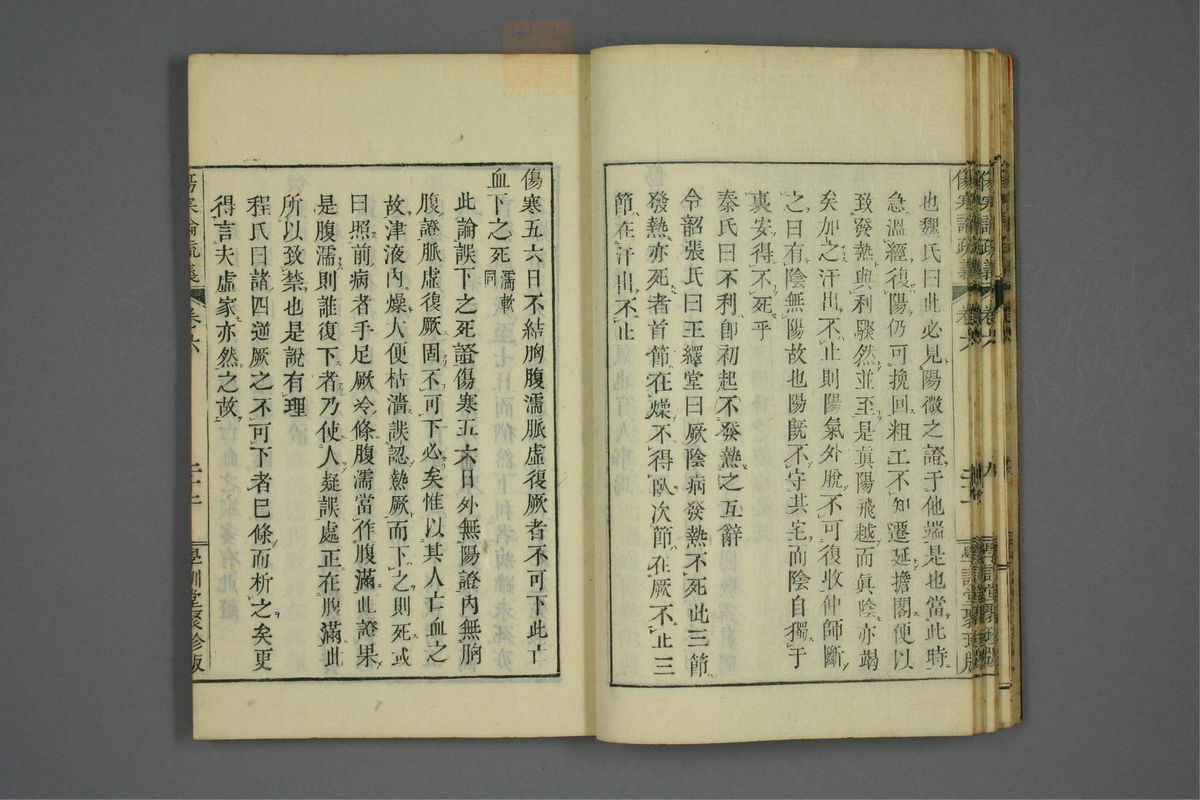 也魏氏曰此必見陽微之證于他端是也當此時
急溫經復陽仍可挽回粗工不知遷延擔閣便以
致發熱與利驟然並至是眞陽飛越而眞陰亦竭
矣加之汗出不止則陽氣外脫不可復收仲師斷
之曰有陰無陽故也陽旣不守其宅而陰自獨于
裏安得不死乎
秦氏曰不利卽初起不發熱之互辭
令韶張氏曰王繹堂曰厥陰病發熱不死此三節
發熱亦死者首節在燥不得臥次節在厥不止三
節在汗出不止
傷寒五六日不結胸腹濡脈虛復厥者不可下此亡
血下之死濡軟同
此論誤下之死證傷寒五六日外無陽證內無胸
腹證脈虛復厥固不可下必矣惟以其人亡血之
故津液內燥大便枯濇誤認熱厥而下之則死或
曰照前病者手足厥冷條腹濡當作腹滿此證果
是腹濡則誰復下者乃使人疑誤處正在腹滿此
所以致禁也是說有理
程氏曰諸四逆厥之不可下者已條而析之矣更
得言夫虛家亦然之故
傷寒論疏義
卷六
二十二
學訓堂聚珍版